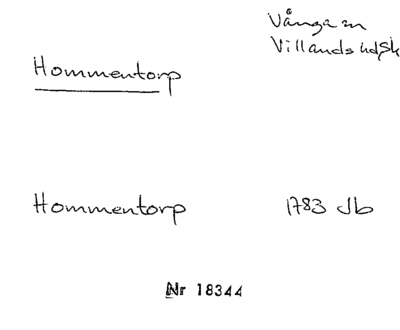 Vånga sn
Villands hd Sk
Hommentorp
Hommentorp 1783 Jb
Nr 18344